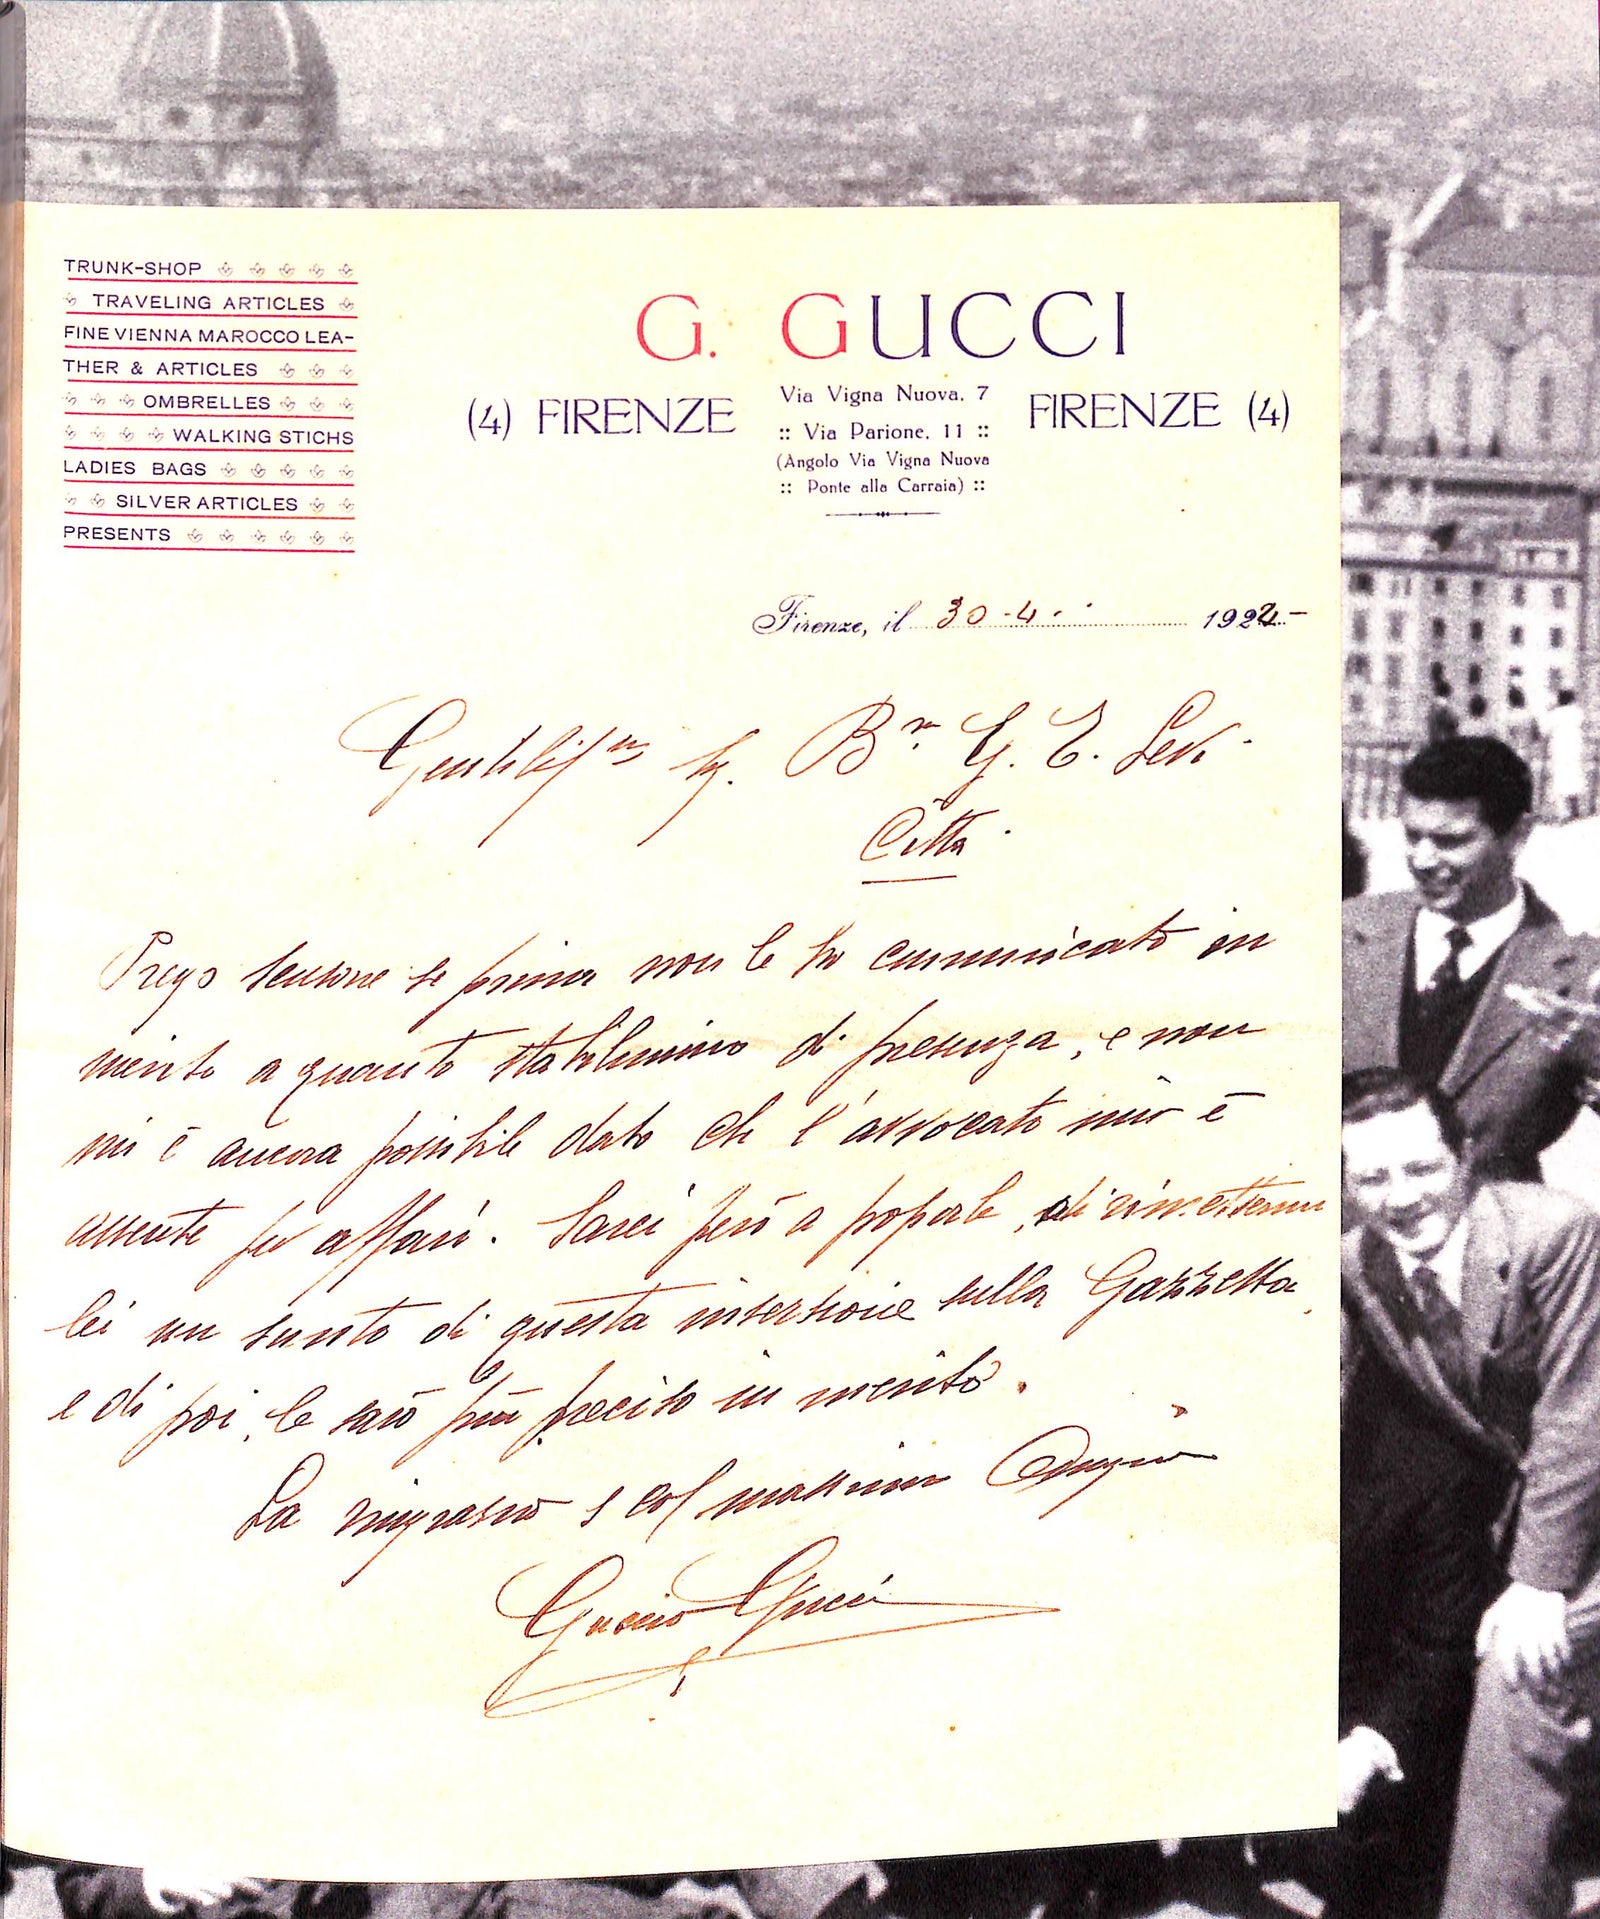 TRUNK-SHOP
TRAVELING ARTICLES
FINE VIENNA MAROCCO LEA-
THER & ARTICLES
OMBRELLES
WALKING STICHS
LADIES BAGS
SILVER ARTICLES
PRESENTS
G. GUCCI
(4) FIRENZE
Via Vigna Nuova, 7
:: Via Parione, 11 ::
(Angolo Via Vigna Nuova
:: Ponte alla Carraia) ::
FIRENZE (4)
Firenze, il 30-4 192
G. E. Levi
Città
Prego scusarme se prima non le ho comunicato in
merito a quanto stabilimmo di presenza, e non
mi è ancora possibile dato che l'avvocato mio è
assente per affari. Sarei però a pregarla, di rimettermi
lei un sunto di questa inserzione sulla Gazzetta
e di poi, le sarò più preciso in merito.
La ringrazio e col massimo
Guccio Gucci